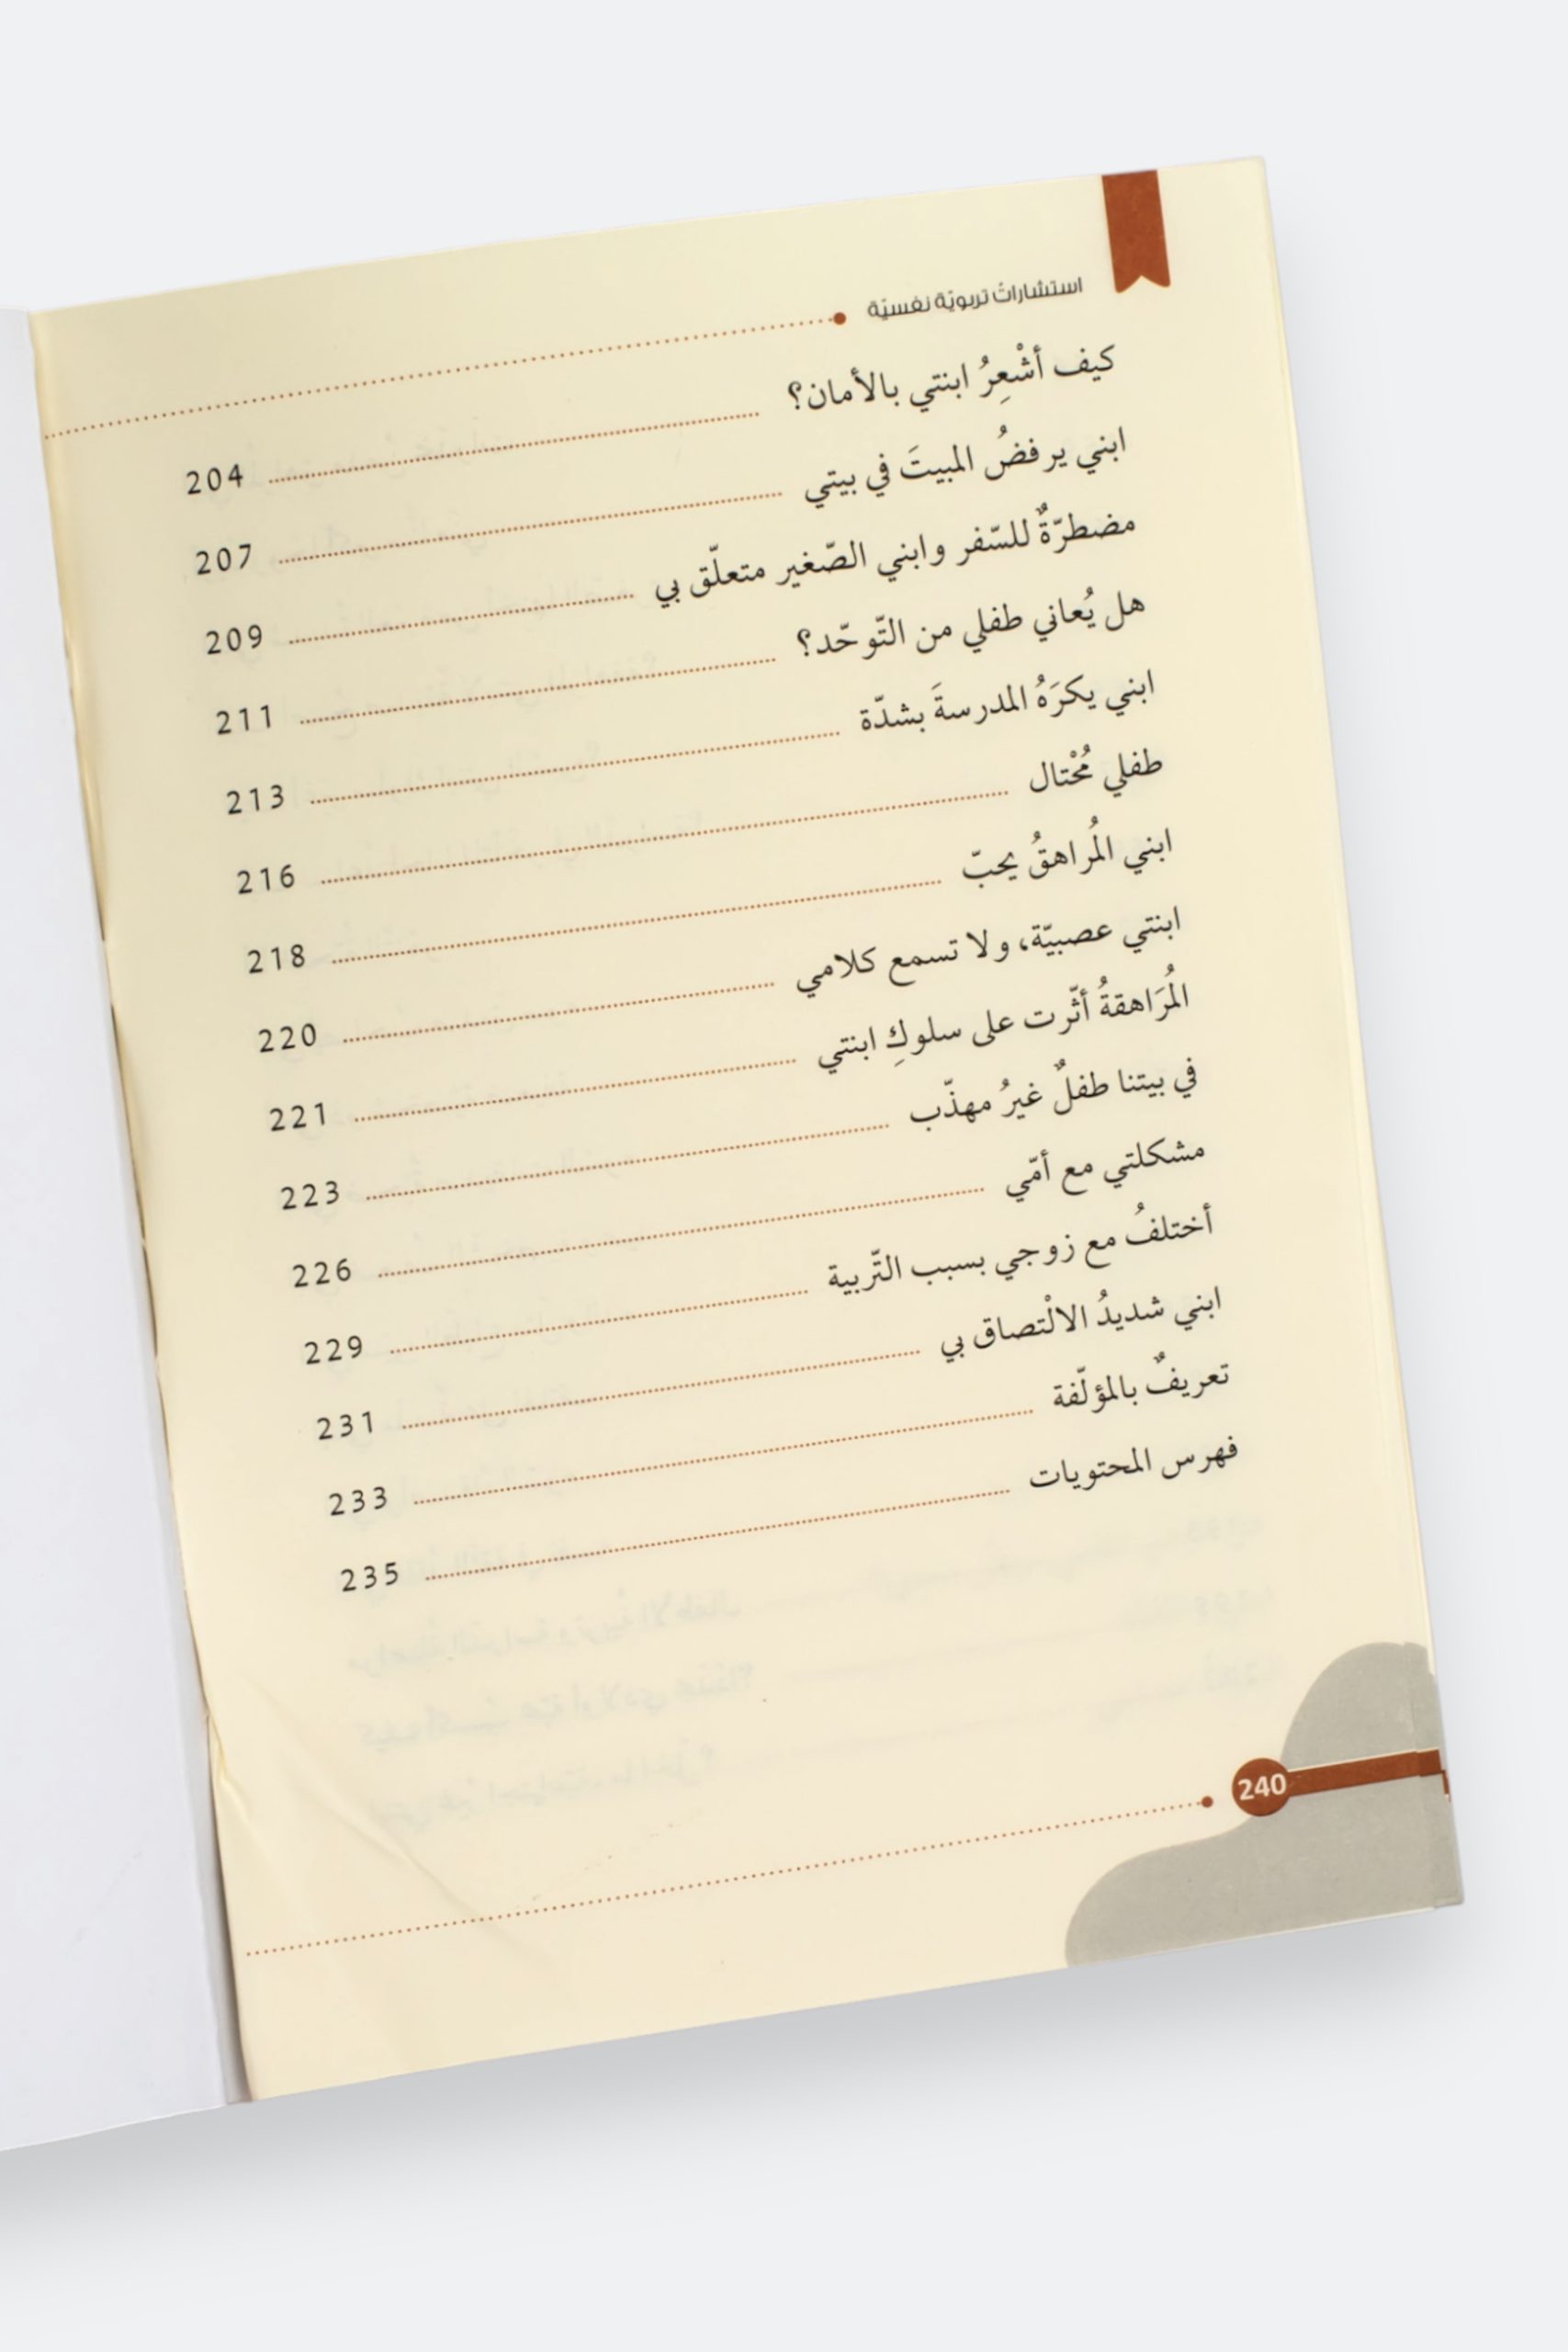 استشاراتٌ تربويّة نفسيّة
كيف أشْعِرُ ابنتي بالأمان؟ 204
ابني يرفضُ المبيتَ في بيتي 207
مضطرّةٌ للسّفر وابني الصّغير متعلّق بي 209
هل يُعاني طفلي من التّوحّد؟ 211
ابني يكرَهُ المدرسةَ بشدّة 213
طفلي مُحْتال 216
ابني المُراهقُ يحبّ 218
ابنتي عصبيّة، ولا تسمع كلامي 220
المُرَاهقةُ أثّرت على سلوكِ ابنتي 221
في بيتنا طفلٌ غيرُ مهذّب 223
مشكلتي مع أمّي 226
أختلفُ مع زوجي بسبب التّربية 229
ابني شديدُ الالْتصاق بي 231
تعريفٌ بالمؤلّفة 233
فهرس المحتويات 235
240